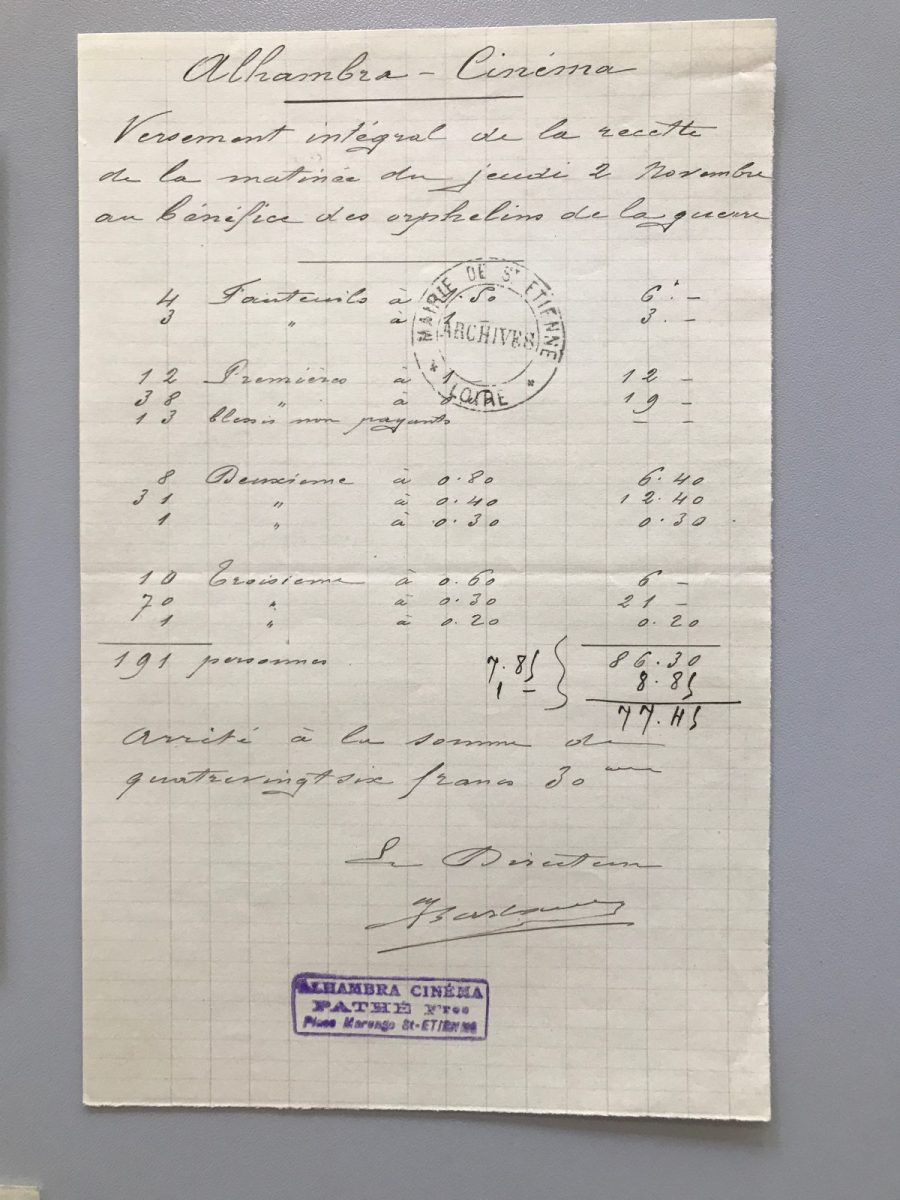 Alhambra - Cinéma
Versement intégral de la recette
de la matinée du jeudi 2 Novembre
au bénéfice des orphelins de la guerre
4 Fauteuils à 1.50 6. -
3 " à 1 3. -
MAIRIE DE ST ETIENNE
ARCHIVES
* LOIRE *
12 Premières à 1 12 -
38 " à 19 -
13 blessés non payants - -
8 Deuxième à 0.80 6.40
31 " à 0.40 12.40
1 " à 0.30 0.30
10 Troisième à 0.60 6 -
70 " à 0.30 21 -
1 " à 0.20 0.20
191 personnes 7.85 86.30
1 - 8.85
77.45
Arrêté à la somme de
quatrevingtsix francs 30
Le Directeur
ALHAMBRA CINÉMA
PATHÉ Fres
Place Marengo St-ETIENNE